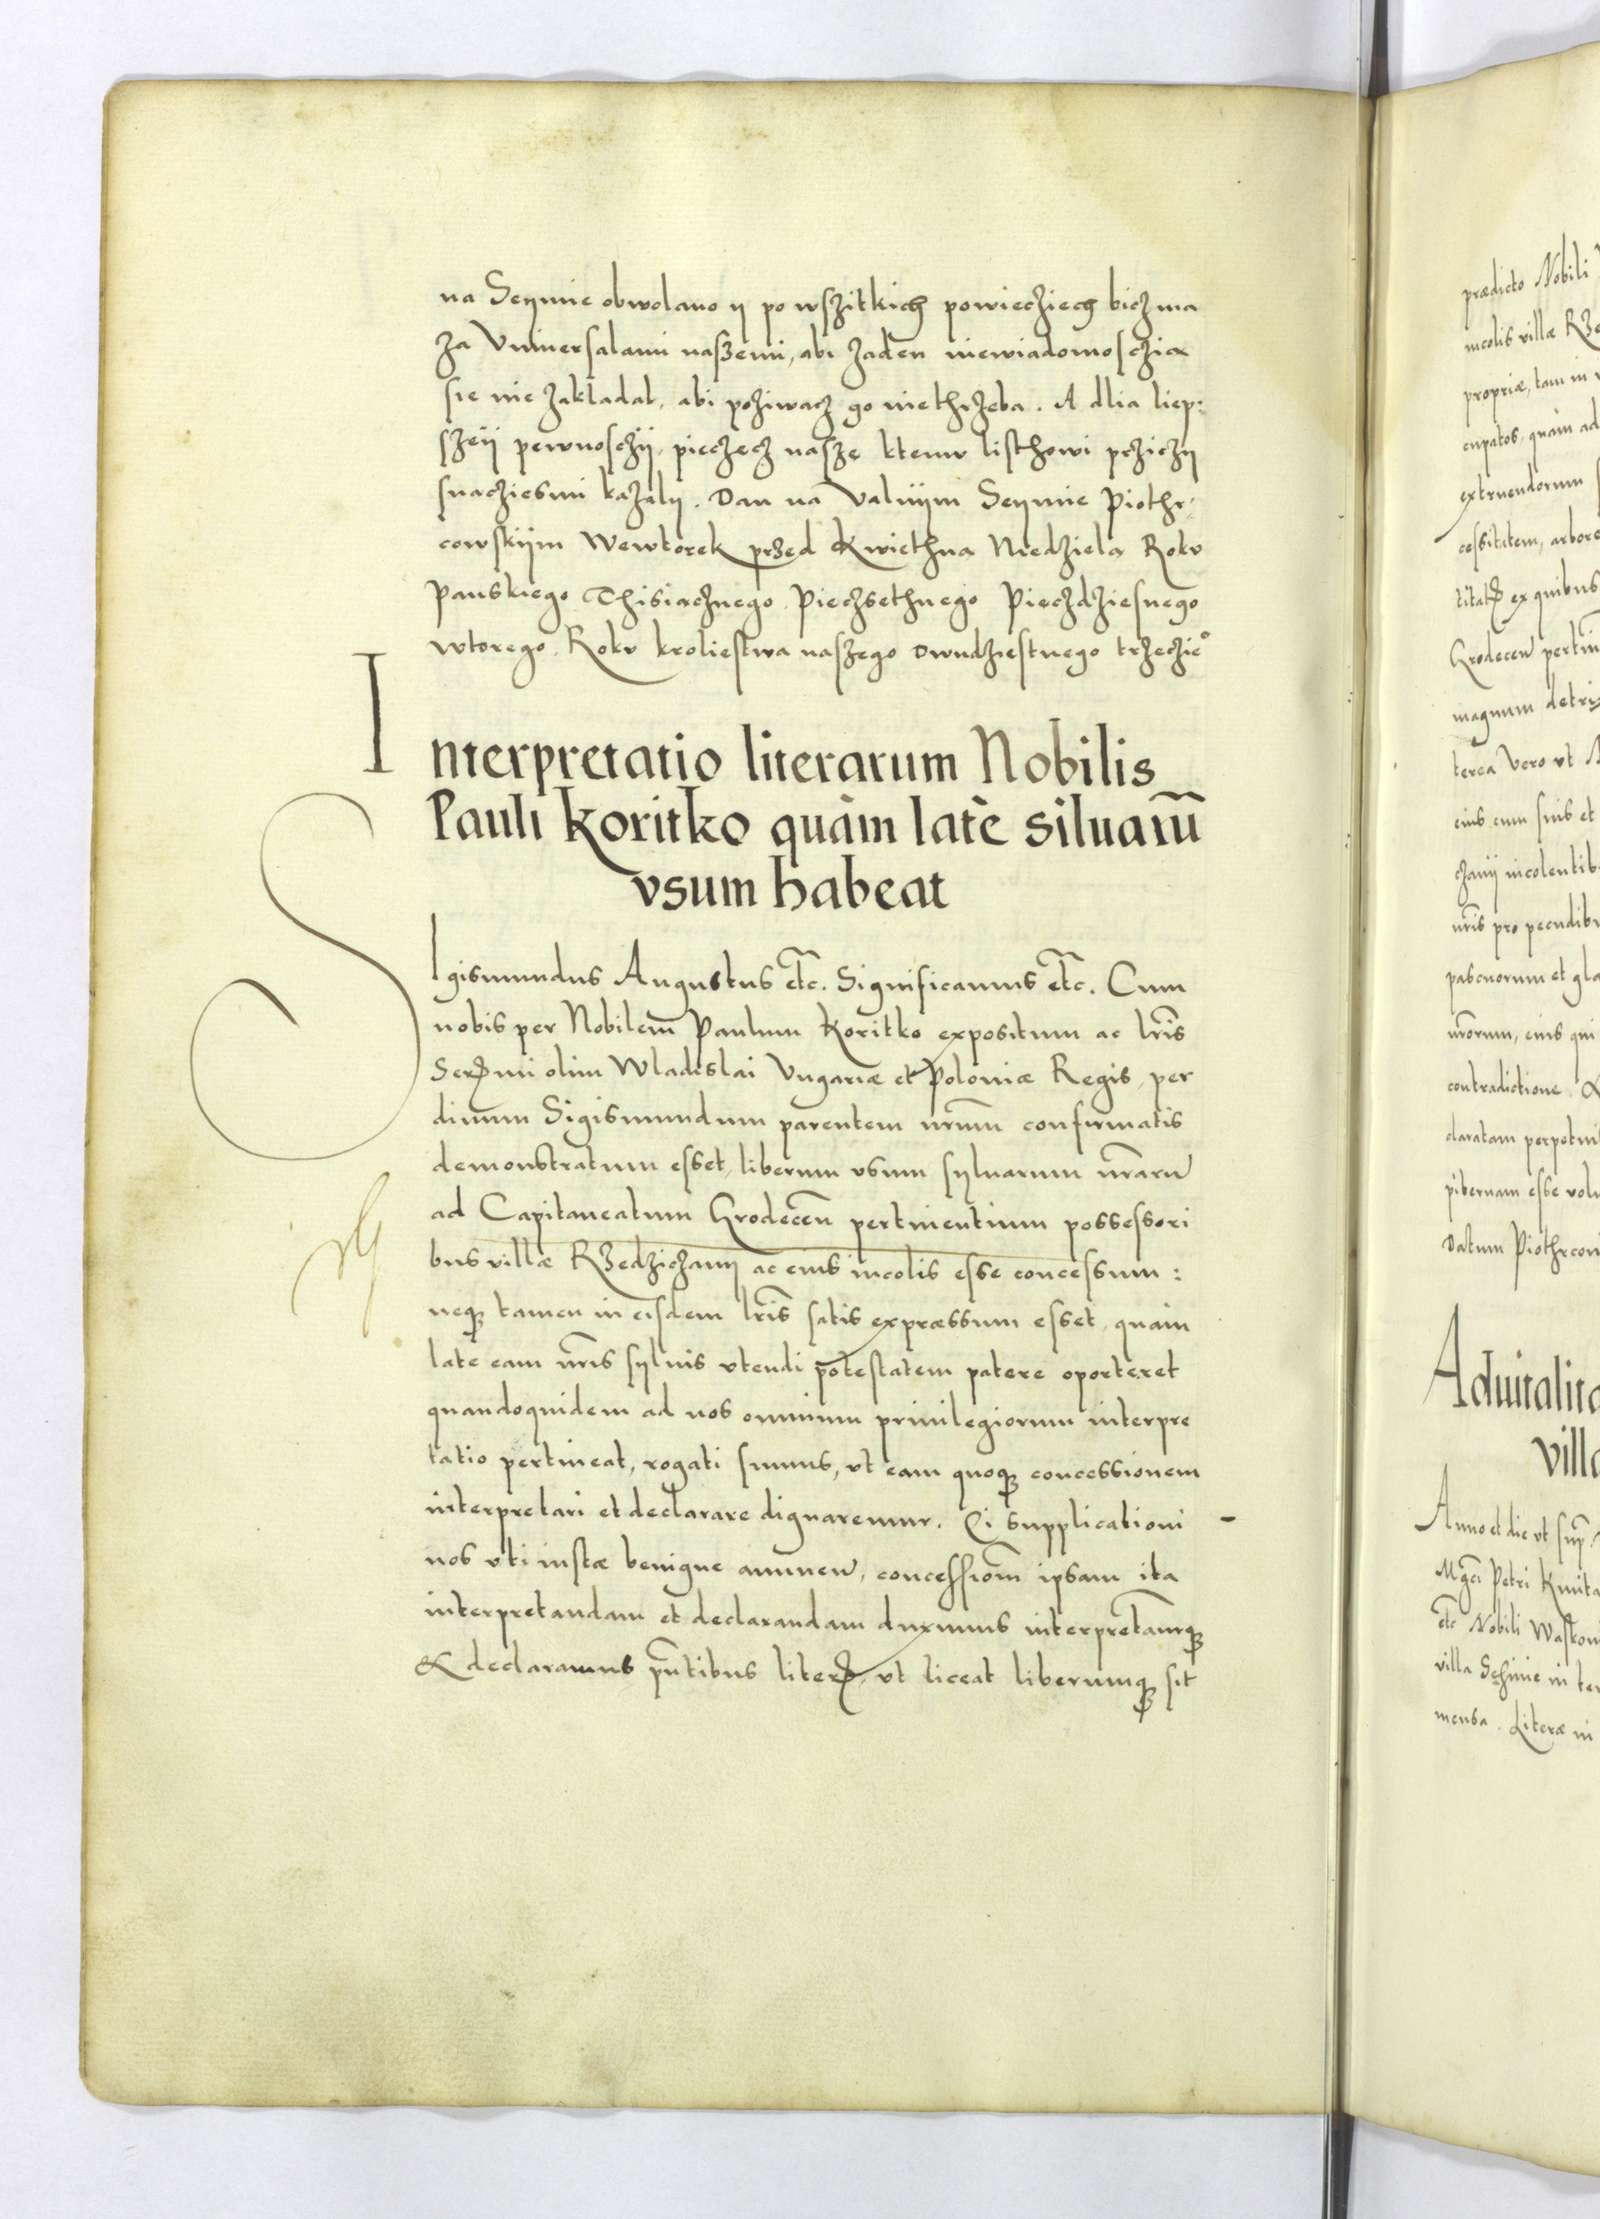 na Seymie obwolano y po wszitkich powieciech bicz ma
za Vniuersalami naszemi, abi zaden niewiadomosczia
sie nie zakladal, abi poziwacz go niethrzeba. A dlia liep:
szeÿ pewnosczÿ, pieczecz nasze ktemv listhowi prziczÿ
snacziesmi kazaly. Dan na Valnÿm Seymie Piothr
cowskÿm Wewtorek przed Kwiethna Niedziela Rokv
Panskiego Thisiacznego Pieczsethnego Pieczdziesnego
wtorego. Rokv kroliestwa naszego dwudziestnego trzeczie°
Interpretatio literarum Nobilis
Pauli Koritko quàm latè siluarū
vsum habeat
SIgismundus Augustus etc̄. Significamus etc̄. Cum
nobis per Nobilem Paulum Koritko expositum ac lr̄is
Serꝫmi olim Wladislai Vngariæ et Poloniæ Regis, per
diuum Sigismundum parentem nr̄um confirmatis
demonstratum esset, liberum vsum syluarum nr̄aru
ad Capitaneatum Grodecen̄ pertinentium possessori
bus villæ Rzedzichany ac eius incolis esse concessum:
neqꝫ tamen in eisdem lr̄is satis expræssum esset, quàm
late eam nr̄is syluis vtendi potestatem patere oporteret
quandoquidem ad nos omnium priuilegiorum interpre
tatio pertineat, rogati sumus, vt eam quoqꝫ concessionem
interpretari et declarare dignaremur. Qi supplicationi
nos vti iustæ benigne annuen, concessiom̄ ipsam ita
interpretandam et declarandam duximus interpretamurqꝫ
& declaramus pn̄tibus literꝫ, vt liceat liberumqꝫ sit
prædicto Nobili
incolis villæ Rze
propriæ, tam in
cupatos, quàm ad
extruendorum
cessitatem, arbore
titatꝫ ex quibus
Grodecen pertin
magnum detri
terea Vero vt
eius cum suis et
chanÿ incolentib
nr̄is pro pecudib
pascuorum et gla
nr̄orum, eius qui
contradictione
claratam perpetui
pibernam esse volu
Datum Piothrcou
Aduitalita
villa
Anno et die vt sup̄.
Mgci Petri Kmita
etc̄ Nobili Wasko
villa Schinie in ter
mensa. Literæ in